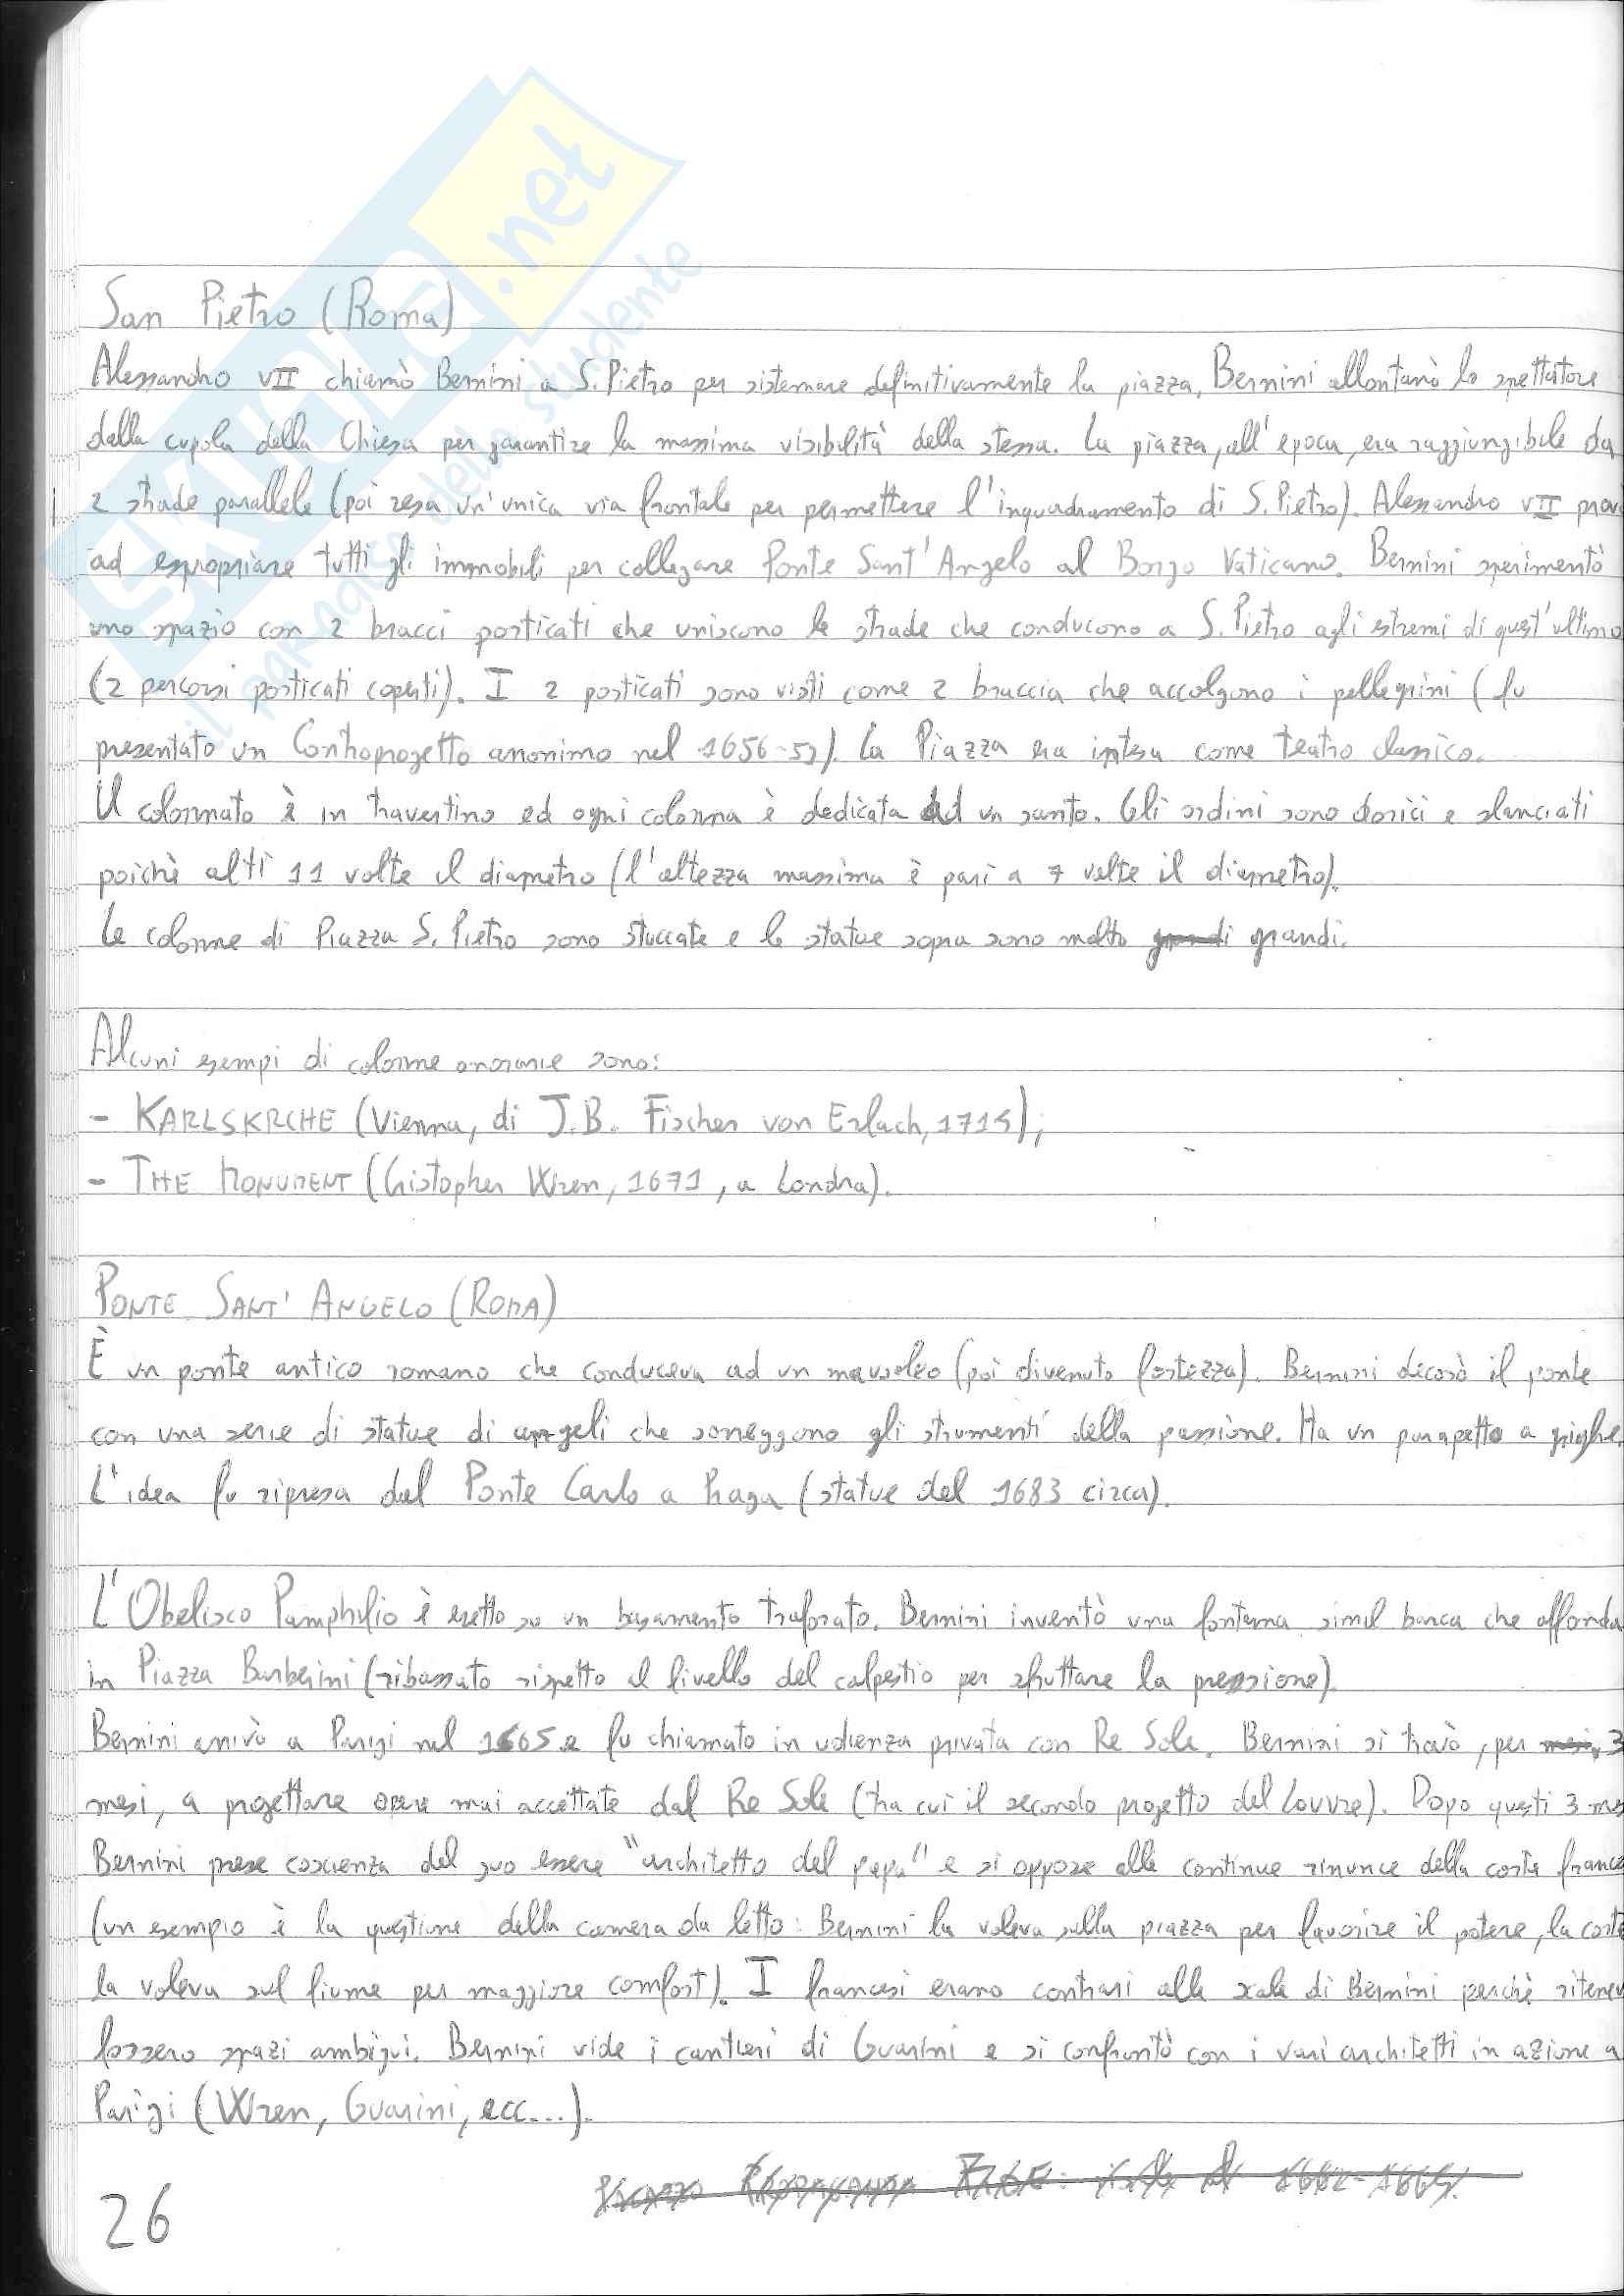 SKUOLA.net
il paradiso dello studente
San Pietro (Roma)
Alessandro VII chiamò Bernini a S. Pietro per sistemare definitivamente la piazza. Bernini allontanò lo spettatore
dalla cupola della Chiesa per garantire la massima visibilità della stessa. La piazza, all'epoca, era raggiungibile da
2 strade parallele (poi resa un'unica via frontale per permettere l'inquadramento di S. Pietro). Alessandro VII prov
ad espropriare tutti gli immobili per collegare Ponte Sant'Angelo al Borgo Vaticano. Bernini sperimentò
uno spazio con 2 bracci porticati che uniscono le strade che conducono a S. Pietro agli estremi di quest'ultimo
(2 percorsi porticati coperti). I 2 porticati sono visti come 2 braccia che accolgono i pellegrini (fu
presentato un Controprogetto anonimo nel 1656-57). La Piazza era intesa come teatro classico.
Il colonnato è in travertino ed ogni colonna è dedicata ad un santo. Gli ordini sono dorici e slanciati
poichè alti 11 volte il diametro (l'altezza massima è pari a 7 volte il diametro).
Le colonne di Piazza S. Pietro sono stuccate e le statue sopra sono molto grandi grandi.
Alcuni esempi di colonne onorarie sono:
- KARLSKRCHE (Vienna, di J.B. Fischer von Erlach, 1715);
- THE MONUMENT (Cristopher Wren, 1671, a Londra).
PONTE SANT'ANGELO (ROMA)
È un ponte antico romano che conduceva ad un mausoleo (poi divenuto fortezza). Bernini decorò il ponte
con una serie di statue di angeli che sorreggono gli strumenti della passione. Ha un parapetto a griglie
L'idea fu ripresa dal Ponte Carlo a Praga (statue del 1683 circa).
L'Obelisco Pamphilio è eretto su un basamento traforato. Bernini inventò una fontana simil barca che affonda
in Piazza Barberini (ribassato rispetto al livello del calpestio per sfruttare la pressione).
Bernini arrivò a Parigi nel 1665 e fu chiamato in udienza privata con Re Sole. Bernini si trovò, per 3
mesi, a progettare opere mai accettate dal Re Sole (tra cui il secondo progetto del Louvre). Dopo questi 3 mes
Bernini prese coscienza del suo essere "architetto del papa" e si oppose alle continue rinunce della corte france
(un esempio è la questione della camera da letto: Bernini la voleva sulla piazza per favorire il potere, la corte
la voleva sul fiume per maggiore comfort). I francesi erano contrari alle scale di Bernini perchè ritenev
fossero spazi ambigui. Bernini vide i cantieri di Guarini e si confrontò con i vari architetti in azione a
Parigi (Wren, Guarini, ecc...).
26